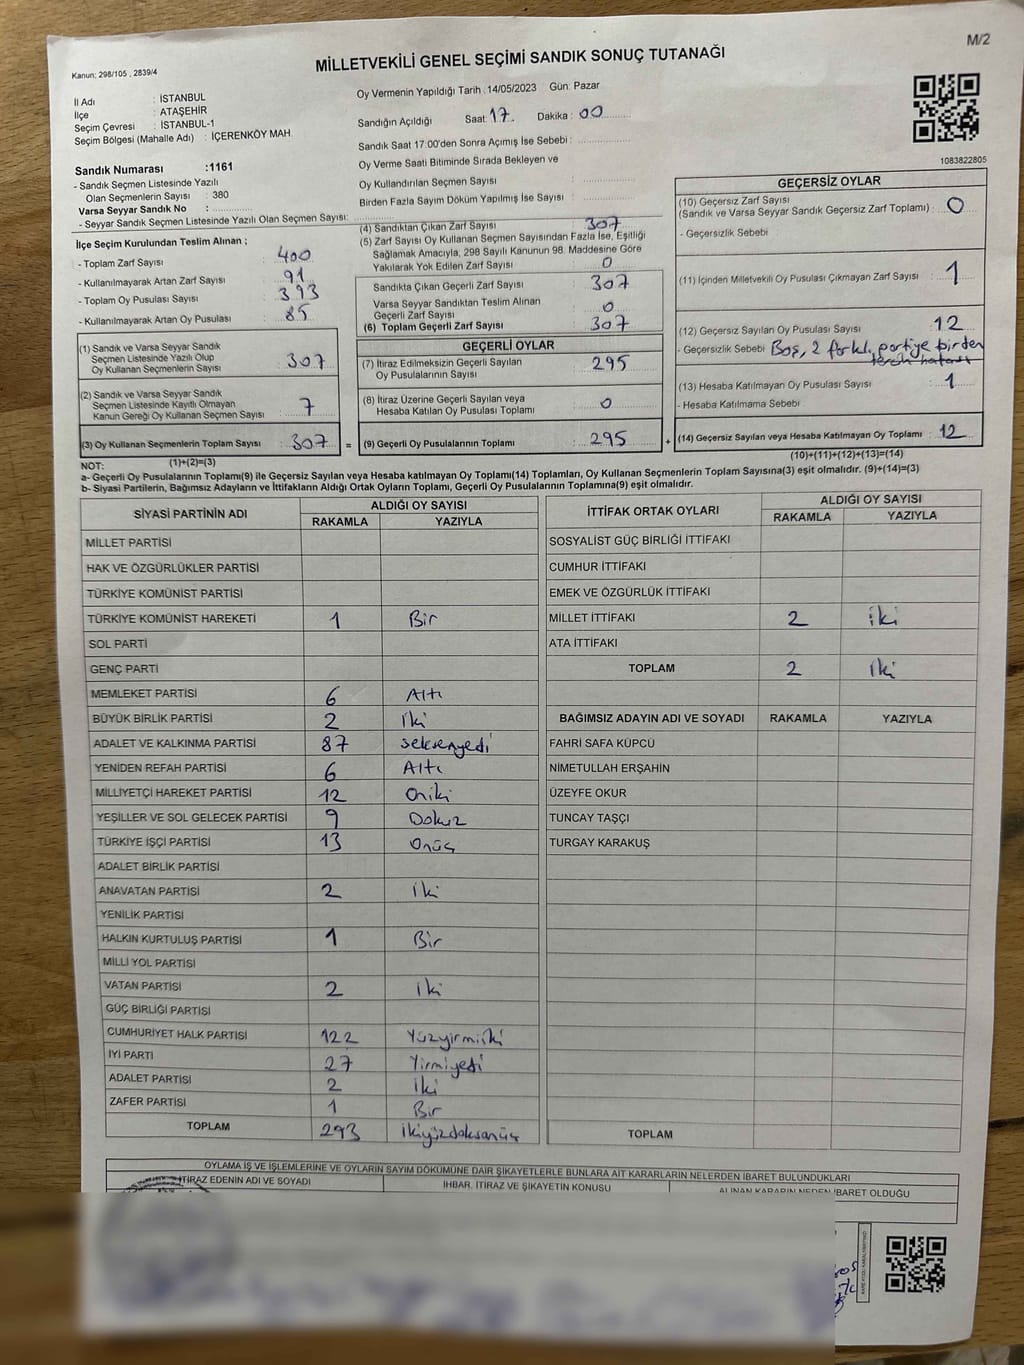 M/2
Kanun; 298/105 , 2839/4
MİLLETVEKİLİ GENEL SEÇİMİ SANDIK SONUÇ TUTANAĞI
İl Adı : İSTANBUL
İlçe : ATAŞEHİR
Seçim Çevresi : İSTANBUL-1
Seçim Bölgesi (Mahalle Adı) : İÇERENKÖY MAH.
Sandık Numarası :1161
- Sandık Seçmen Listesinde Yazılı
Olan Seçmenlerin Sayısı : 380
Varsa Seyyar Sandık No :
- Seyyar Sandık Seçmen Listesinde Yazılı Olan Seçmen Sayısı:
Oy Vermenin Yapıldığı Tarih :14/05/2023 Gün: Pazar
Sandığın Açıldığı Saat: 17 Dakika : 00
Sandık Saat 17:00'den Sonra Açımış İse Sebebi :
Oy Verme Saati Bitiminde Sırada Bekleyen ve
Oy Kullandırılan Seçmen Sayısı :
Birden Fazla Sayım Döküm Yapılmış İse Sayısı :
1083822805
İlçe Seçim Kurulundan Teslim Alınan ;
- Toplam Zarf Sayısı : 400
- Kullanılmayarak Artan Zarf Sayısı : 91
- Toplam Oy Pusulası Sayısı : 393
- Kullanılmayarak Artan Oy Pusulası : 85
(1) Sandık ve Varsa Seyyar Sandık
Seçmen Listesinde Yazılı Olup
Oy Kullanan Seçmenlerin Sayısı : 307
(2) Sandık ve Varsa Seyyar Sandık
Seçmen Listesinde Kayıtlı Olmayan
Kanun Gereği Oy Kullanan Seçmen Sayısı : 7
(3) Oy Kullanan Seçmenlerin Toplam Sayısı : 307
(1)+(2)=(3)
(4) Sandıktan Çıkan Zarf Sayısı : 307
(5) Zarf Sayısı Oy Kullanan Seçmen Sayısından Fazla İse, Eşitliği
Sağlamak Amacıyla, 298 Sayılı Kanunun 98. Maddesine Göre
Yakılarak Yok Edilen Zarf Sayısı : 0
Sandıkta Çıkan Geçerli Zarf Sayısı : 307
Varsa Seyyar Sandıktan Teslim Alınan
Geçerli Zarf Sayısı : 0
(6) Toplam Geçerli Zarf Sayısı : 307
GEÇERLİ OYLAR
(7) İtiraz Edilmeksizin Geçerli Sayılan
Oy Pusulalarının Sayısı : 295
(8) İtiraz Üzerine Geçerli Sayılan veya
Hesaba Katılan Oy Pusulası Toplamı : 0
= (9) Geçerli Oy Pusulalarının Toplamı : 295
GEÇERSİZ OYLAR
(10) Geçersiz Zarf Sayısı
(Sandık ve Varsa Seyyar Sandık Geçersiz Zarf Toplamı) : 0
- Geçersizlik Sebebi
(11) İçinden Milletvekili Oy Pusulası Çıkmayan Zarf Sayısı : 1
(12) Geçersiz Sayılan Oy Pusulası Sayısı : 12
- Geçersizlik Sebebi Boş, 2 farklı partiye birden
tercih hatası
(13) Hesaba Katılmayan Oy Pusulası Sayısı : 1
- Hesaba Katılmama Sebebi
+ (14) Geçersiz Sayılan veya Hesaba Katılmayan Oy Toplamı : 12
(10)+(11)+(12)+(13)=(14)
NOT:
a- Geçerli Oy Pusulalarının Toplamı(9) ile Geçersiz Sayılan veya Hesaba katılmayan Oy Toplamı(14) Toplamları, Oy Kullanan Seçmenlerin Toplam Sayısına(3) eşit olmalıdır. (9)+(14)=(3)
b- Siyasi Partilerin, Bağımsız Adayların ve İttifakların Aldığı Ortak Oyların Toplamı, Geçerli Oy Pusulalarının Toplamına(9) eşit olmalıdır.
SİYASİ PARTİNİN ADI ALDIĞI OY SAYISI
RAKAMLA YAZIYLA
MİLLET PARTİSİ
HAK VE ÖZGÜRLÜKLER PARTİSİ
TÜRKİYE KOMÜNİST PARTİSİ
TÜRKİYE KOMÜNİST HAREKETİ 1 Bir
SOL PARTİ
GENÇ PARTİ
MEMLEKET PARTİSİ 6 Altı
BÜYÜK BİRLİK PARTİSİ 2 iki
ADALET VE KALKINMA PARTİSİ 87 seksenyedi
YENİDEN REFAH PARTİSİ 6 Altı
MİLLİYETÇİ HAREKET PARTİSİ 12 Oniki
YEŞİLLER VE SOL GELECEK PARTİSİ 9 Dokuz
TÜRKİYE İŞÇİ PARTİSİ 13 Onüç
ADALET BİRLİK PARTİSİ
ANAVATAN PARTİSİ 2 iki
YENİLİK PARTİSİ
HALKIN KURTULUŞ PARTİSİ 1 Bir
MİLLİ YOL PARTİSİ
VATAN PARTİSİ 2 iki
GÜÇ BİRLİĞİ PARTİSİ
CUMHURİYET HALK PARTİSİ 122 Yüzyirmiiki
İYİ PARTİ 27 Yirmiyedi
ADALET PARTİSİ 2 iki
ZAFER PARTİSİ 1 Bir
TOPLAM 293 ikiyüzdoksanüç
İTTİFAK ORTAK OYLARI ALDIĞI OY SAYISI
RAKAMLA YAZIYLA
SOSYALİST GÜÇ BİRLİĞİ İTTİFAKI
CUMHUR İTTİFAKI
EMEK VE ÖZGÜRLÜK İTTİFAKI
MİLLET İTTİFAKI 2 iki
ATA İTTİFAKI
TOPLAM 2 iki
BAĞIMSIZ ADAYIN ADI VE SOYADI RAKAMLA YAZIYLA
FAHRİ SAFA KÜPCÜ
NİMETULLAH ERŞAHİN
ÜZEYFE OKUR
TUNCAY TAŞÇI
TURGAY KARAKUŞ
TOPLAM
OYLAMA İŞ VE İŞLEMLERİNE VE OYLARIN SAYIM DÖKÜMÜNE DAİR ŞİKAYETLERLE BUNLARA AİT KARARLARIN NELERDEN İBARET BULUNDUKLARI
İTİRAZ EDENİN ADI VE SOYADI
İHBAR, İTİRAZ VE ŞİKAYETİN KONUSU
ALINAN KARARIN NEDEN İBARET OLDUĞU